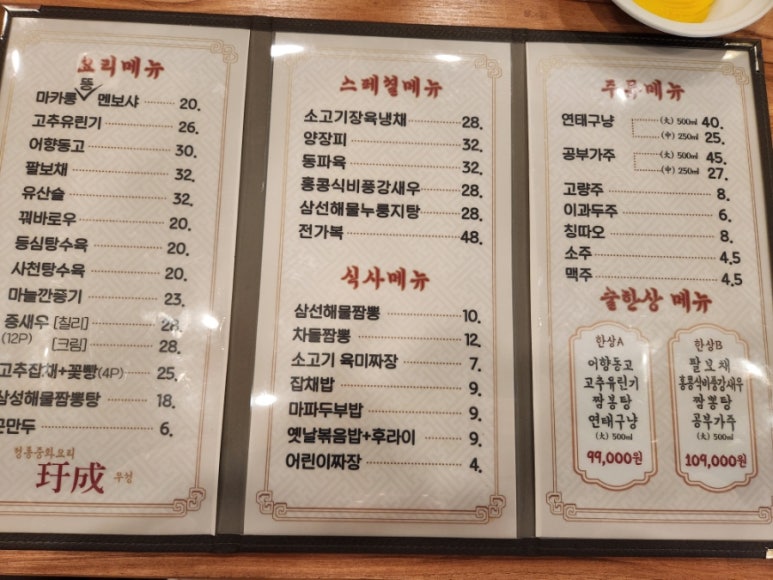 요리메뉴
뚱
마카롱 멘보샤 20.
고추유린기 26.
어향동고 30.
팔보채 32.
유산슬 32.
꿔바로우 20.
등심탕수육 20.
사천탕수육 20.
마늘깐풍기 23.
중새우 [칠리] 28.
(12P) [크림] 28.
고추잡채+꽃빵(4P) 25.
삼선해물짬뽕탕 18.
군만두 6.
정통중화요리
玗成 우성
스페셜메뉴
소고기장육냉채 28.
양장피 32.
동파육 32.
홍콩식비풍강새우 28.
삼선해물누룽지탕 28.
전가복 48.
식사메뉴
삼선해물짬뽕 10.
차돌짬뽕 12.
소고기 육미짜장 7.
잡채밥 9.
마파두부밥 9.
옛날볶음밥+후라이 9.
어린이짜장 4.
주류메뉴
연태구냥 (大) 500㎖ 40.
(中) 250㎖ 25.
공부가주 (大) 500㎖ 45.
(中) 250㎖ 27.
고량주 8.
이과두주 6.
칭따오 8.
소주 4.5
맥주 4.5
술한상 메뉴
한상A
어향동고
고추유린기
짬뽕탕
연태구냥
(大) 500㎖
99,000원
한상B
팔보채
홍콩식비풍강새우
짬뽕탕
공부가주
(大) 500㎖
109,000원